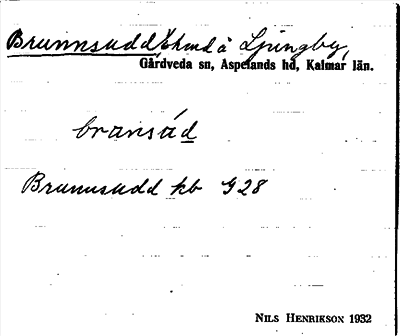 Brunnsudd, Ehmd å Ljungby,
Gårdveda sn, Aspelands hd, Kalmar län.
bransúd
Brunnsudd kb G 28
NILS HENRIKSON 1932